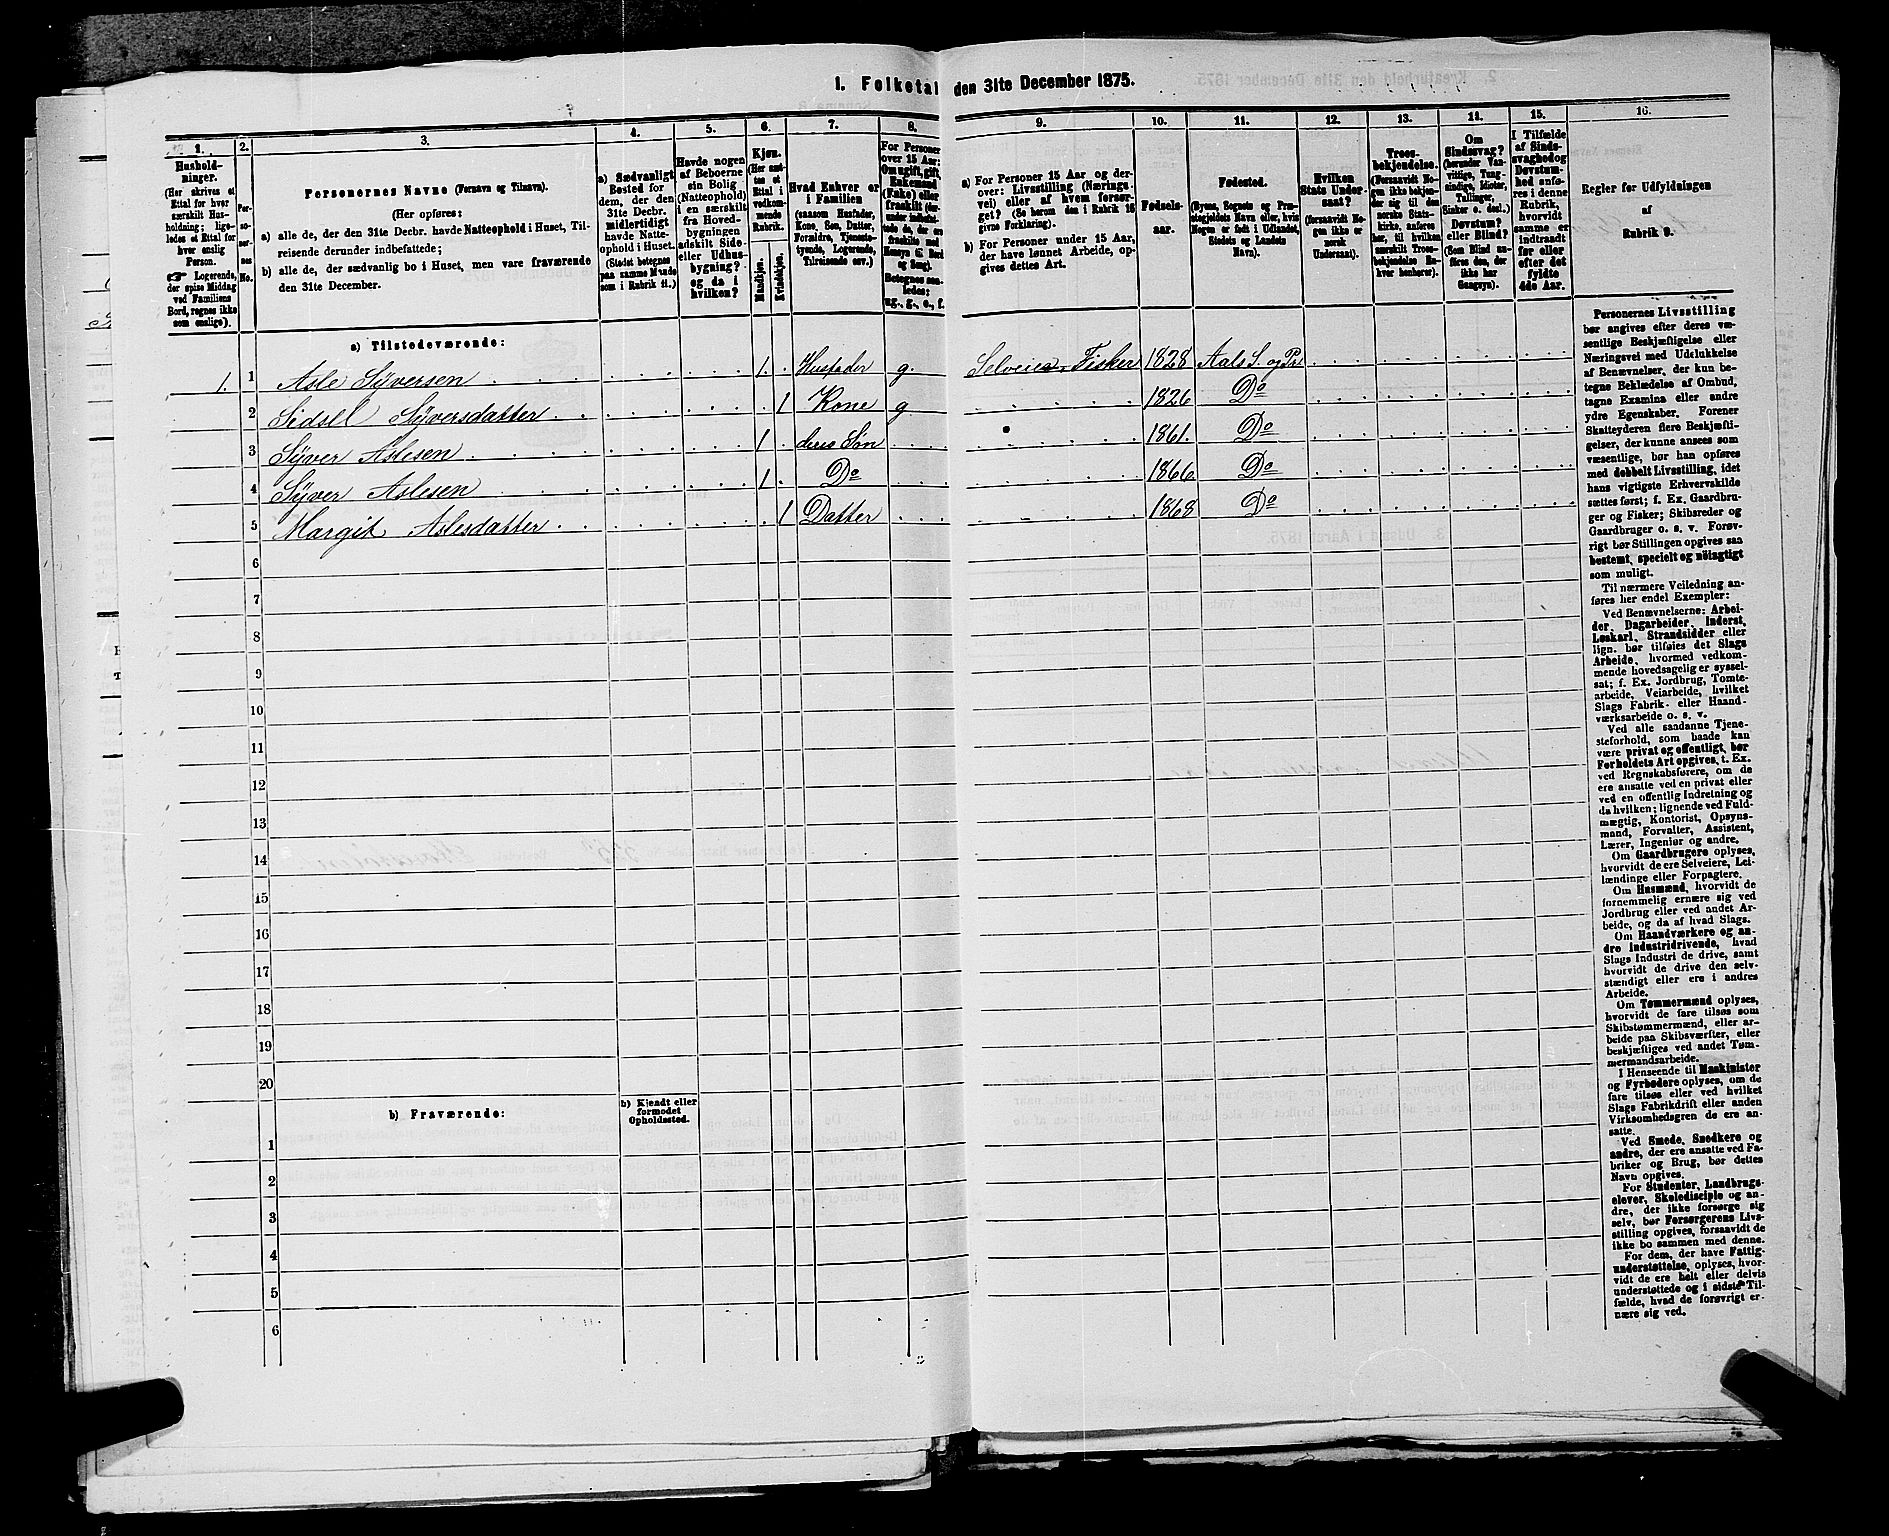 1. Folketal den 31te December 1875.
1.
Hushold-
ninger.
(Her skrives et
Ettal for hver
særskilt Hus-
holdning; lige-
ledes et Ettal for
hver enslig
Person.
☞ Logerende,
der spise Middag
ved Familiens
Bord, regnes ikke
som enslige).
2.
Per-
so-
ner-
nes
No.
3.
Personernes Navne (Fornavn og Tilnavn).
(Her opføres:
a) alle de, der den 31te Decbr. havde Natteophold i Huset, Til-
reisende derunder indbefattede;
b) alle de, der sædvanlig bo i Huset, men vare fraværende
den 31te December.
4.
a) Sædvanligt
Bosted for
dem, der den
31te Decbr.
midlertidigt
havde Natte-
ophold i Huset.
(Stedet betegnes
paa samme Maade
som i Rubrik 11.)
5.
Havde nogen
af Beboerne
sin Bolig
(Natteophold)
i en særskilt
fra Hoved-
bygningen
adskilt Side-
eller Udhus-
bygning?
og da i
hvilken?
6.
Kjøn.
(Her sæt-
tes et
Ettal i
vedkom-
mende
Rubrik.
Mandkjøn.
Kvindekjøn.
7.
Hvad Enhver er
i Familien
(saasom Husfader,
Kone, Søn, Datter,
Forældre, Tjeneste-
tyende, Logerende,
Tilreisende osv.)
8.
For Personer
over 15 Aar:
Om ugift, gift,
Enkemand
(Enke) eller
fraskilt
Betegnes saa-
ledes:
ug., g., e., f.
9.
a) For Personer 15 Aar og der-
over: Livsstilling (Nærings-
vei) eller af hvem forsør-
get? (Se herom den i Rubrik 16
givne Forklaring).
b) For Personer under 15 Aar,
der have lønnet Arbeide, op-
gives dettes Art.
10.
Fødsels-
aar.
11.
Fødested.
(Byens, Sognets og Præ-
stegjeldets Navn eller, hvis
Nogen er født i Udlandet,
Stedets og Landets
Navn).
12.
Hvilken
Stats Under-
saat?
(forsaavidt No-
gen ikke er
norsk
Undersaat).
13.
Troes-
bekjendelse.
(Forsaavidt No-
gen ikke bekjen-
der sig til den
norske Stats-
kirke, anføres
her, til hvilken
særskilt Troes-
bekjendelse En-
hver henhører).
14.
Om
Sindssvag?
(herunder Van-
vittige, Tung-
sindige, Idioter,
Tullinger,
Sinker o. desl.)
Døvstum?
eller Blind?
(Som Blind an-
føres den, der
ikke har
Gangsyn).
15.
I Tilfælde
af Sinds-
svaghed og
Døvstum-
hed anfø-
res i denne
Rubrik,
hvorvidt
samme er
indtraadt
før eller
efter det
fyldte
4de Aar.
16.
Regler for Udfyldningen
af
Rubrik 9.
a) Tilstedeværende:
1. 1 Asle Syversen 1. Husfader g. Selveier, Fisker 1828 Aals S. og Pr.
2 Sidsel Syversdatter 1 Kone g 1826 Do
3 Syver Aslesen 1 deres Søn 1861. Do
4 Syver Aslesen 1 Do 1866 Do
5 Margit Aslesdatter 1 Datter 1868 Do
6
7
8
9
10
11
12
13
14
15
16
17
18
19
20
b) Fraværende:
b) Kjendt eller
formodet
Opholdssted.
1
2
3
4
5
6
Personernes Livsstilling
bør angives efter deres væ-
sentlige Beskjæftigelse eller
Næringsvei med Udelukkelse
af Benævnelser, der kun be-
tegne Beklædelse af Ombud,
tagne Examina eller andre
ydre Egenskaber. Forener
Skatteyderen flere Beskjæfti-
gelser, der kunne ansees som
væsentlige, bør han opføres
med dobbelt Livsstilling, idet
hans vigtigste Erhvervskilde
sættes først; f. Ex. Gaardbru-
ger og Fisker; Skibsreder og
Gaardbruger o. s. v. Forøv-
rigt bør Stillingen opgives saa
bestemt, specielt og nöiagtigt
som muligt.
Til nærmere Veiledning an-
føres her endel Exempler:
Ved Benævnelserne: Arbei-
der, Dagarbeider, Inderst,
Løskarl, Strandsidder eller
lign. bør tilføies det Slags
Arbeide, hvormed vedkom-
mende hovedsagelig er syssel-
sat; f. Ex. Jordbrug, Tomte-
arbeide, Veiarbeide, hvilket
Slags Fabrik- eller Haand-
værksarbeide o. s. v.
Ved alle saadanne Tjene-
steforhold, som baade kan
være privat og offentligt, bør
Forholdets Art opgives, t. Ex.
ved Regnskabsførere, om de
ere ansatte ved en privat eller
ved en offentlig Indretning og
da hvilken; lignende ved Fuld-
mægtig, Kontorist, Opsyns-
mand, Forvalter, Assistent,
Lærer, Ingeniør og andre.
Om Gaardbrugere oplyses,
hvorvidt de ere Selveiere, Lei-
lændinge eller Forpagtere.
Om Husmænd, hvorvidt de
fornemmelig ernære sig ved
Jordbrug eller ved andet Ar-
beide, og da af hvad Slags.
Om Haandværkere og an-
dre Industridrivende, hvad
Slags Industri de drive, samt
hvorvidt de drive den selv-
stændigt eller ere i andres
Arbeide.
Om Tømmermænd oplyses,
hvorvidt de fare tilsøs som
Skibstømmermænd, eller ar-
beide paa Skibsværfter, eller
beskjæftiges ved andet Tøm-
mermandsarbeide.
I Henseende til Maskinister
og Fyrbødere oplyses, om de
fare tilsøs eller ved hvilket
Slags Fabrikdrift eller anden
Virksomhedsgren de ere an-
satte.
Ved Smede, Snedkere og
andre, der ere ansatte ved Fa-
briker og Brug, bør dettes
Navn opgives.
For Studenter, Landbrugs-
elever, Skoledisciple og an-
dre, der ikke forsørge sig
selv, bør Forsørgerens Livs-
stilling opgives, forsaavidt de
ikke bo sammen med denne.
For dem, der have Fattig-
understøttelse, oplyses, hvor-
vidt de ere helt eller delvis
understøttede og i sidste Til-
fælde, hvad de forøvrigt er-
nære sig ved.